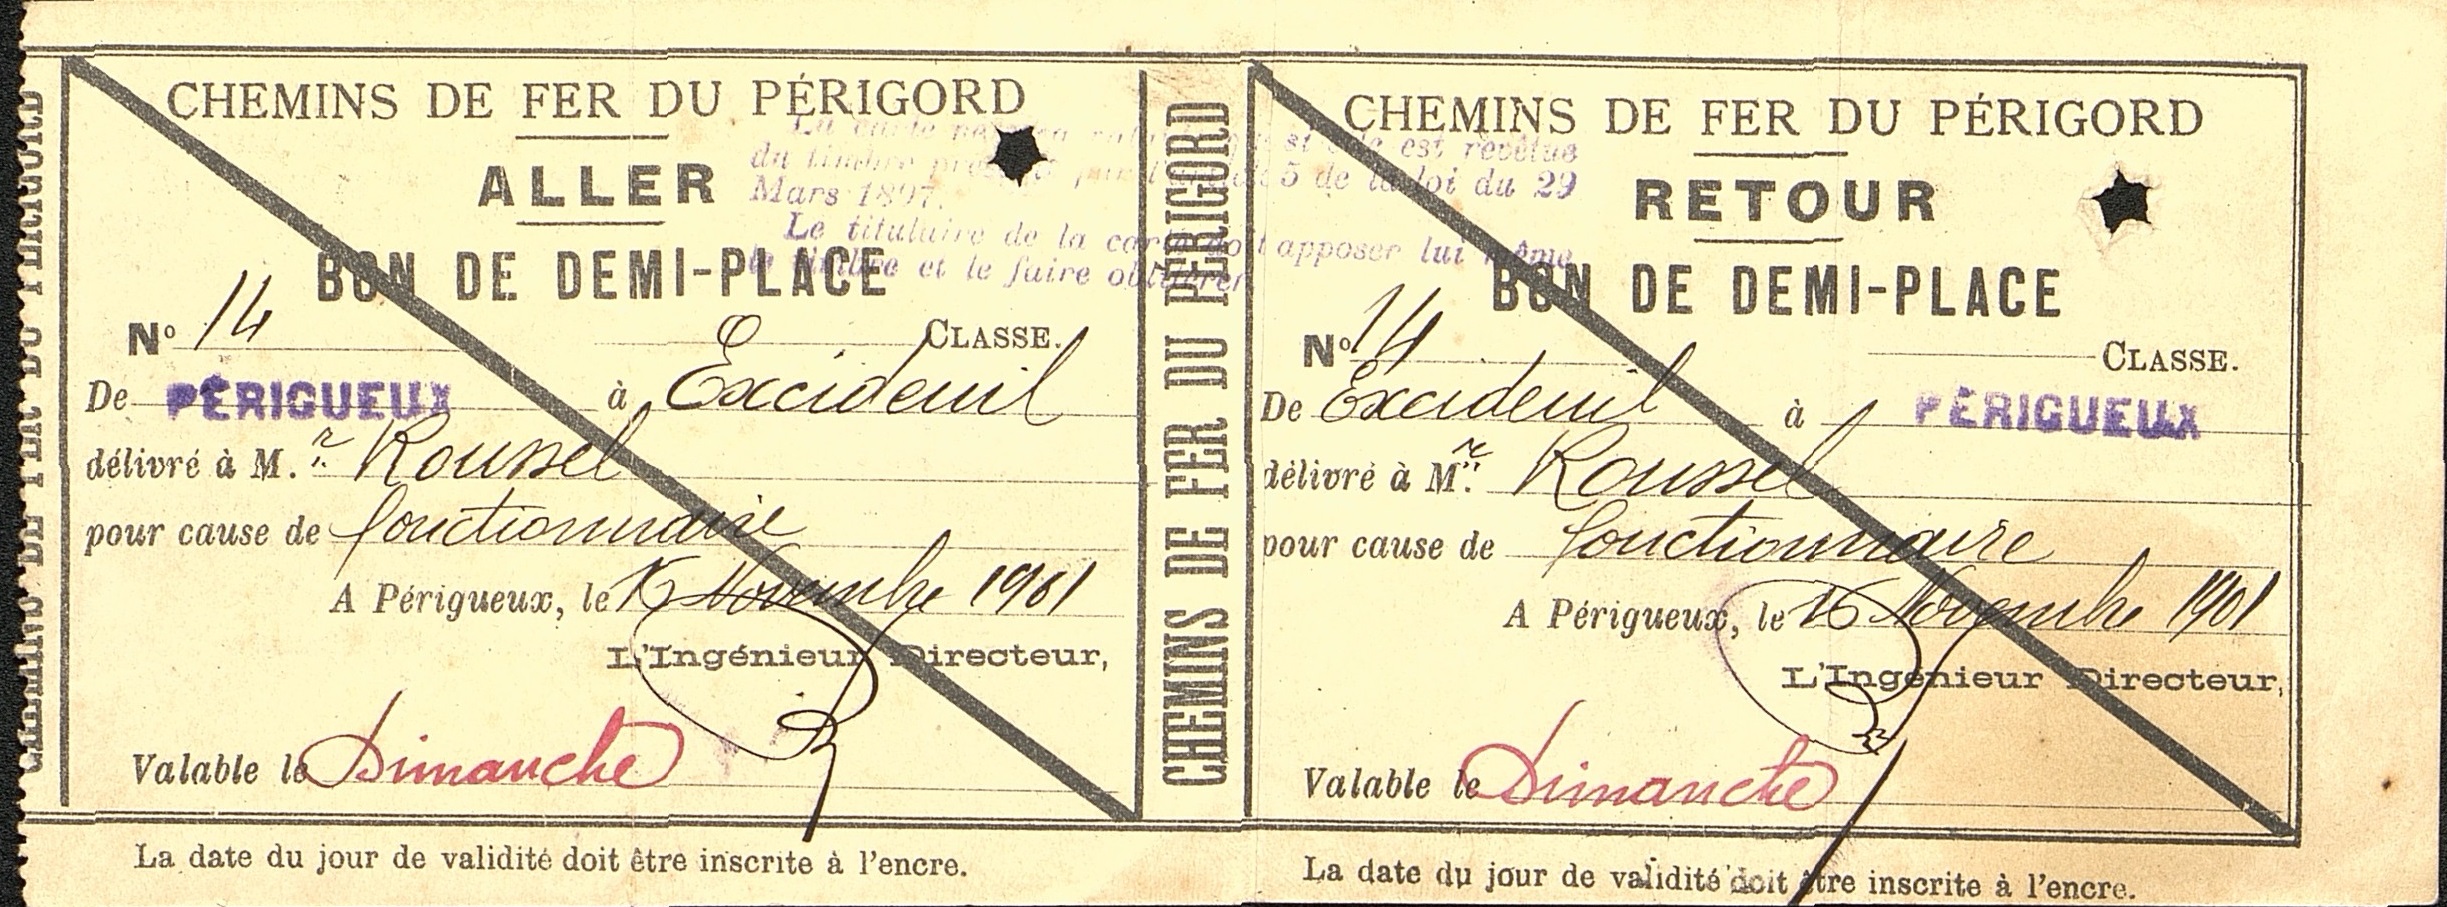 CHEMINS DE FER DU PÉRIGORD
CHEMINS DE FER DU PÉRIGORD
ALLER
BON DE DEMI-PLACE
No 14 CLASSE.
De PÉRIGUEUX à Excideuil
délivré à M.r Roussel
pour cause de fonctionnaire
A Périgueux, le 16 Novembre 1901
L'Ingénieur Directeur,
Valable le Dimanche
La date du jour de validité doit être inscrite à l'encre.
La carte est revêtue
du timbre 5 de la loi du 29
Mars 1897.
Le titulaire de la carte doit apposer lui même
le timbre et le faire oblitérer
CHEMINS DE FER DU PÉRIGORD
CHEMINS DE FER DU PÉRIGORD
RETOUR
BON DE DEMI-PLACE
No 14 CLASSE.
De Excideuil à PÉRIGUEUX
délivré à Mr Roussel
pour cause de fonctionnaire
A Périgueux, le 16 Novembre 1901
L'Ingénieur Directeur,
Valable le Dimanche
La date du jour de validité doit être inscrite à l'encre.